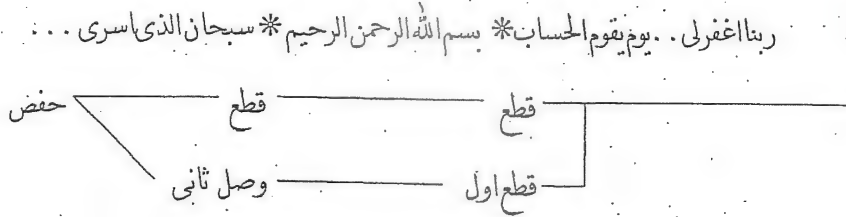 ربنا اغفرلى . . يوم يقوم الحساب * بسم الله الرحمن الرحيم * سبحان الذى اسرى . . .
قطع قطع حفض
قطع اول وصل ثانى